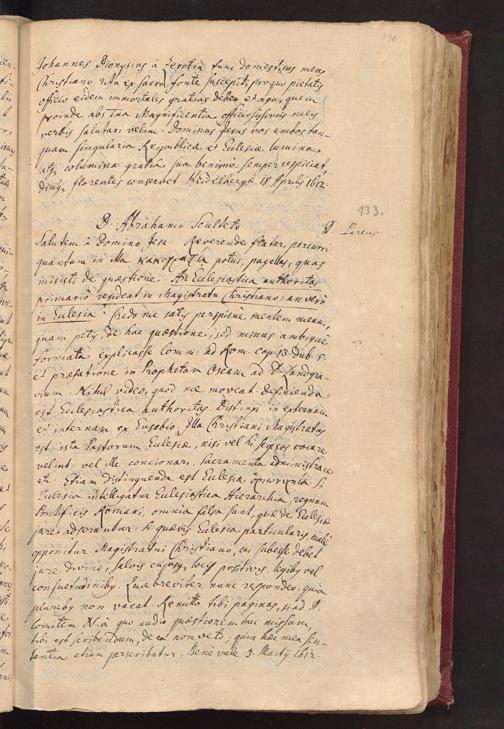 190
Johannes Dionysius à Zerotin tunc domesticus meus
Christiano ritu ex sacro fonte suscepit, pro quo pietatis
officio eidem immortales gratias debeo, et ago, quem
proinde abs tua Magnificentia officiosissimis meis
verbis salutari velim. Dominus Jesus vos ambos tan-
quam singularia Reipublicæ et Ecclesiæ lumina
atq; columina gratia sua benigne semper respiciat,
diuq; florentes conservet. Heidelbergæ 18 Aprilis 1612.
133.
D. Abrahamo Sculteto
D. Pareus
Salutem à Domino Jesu. Reverende frater, percurri
quantum in illa κακογραφία potui, pagellas, quas
misisti de quæstione. An Ecclesiastica authoritas
primariò resideat in Magistratu Christiano: an verò
in Ecclesia? Credo me satis perspicue mentem meam,
quam petis, de hac quæstione, sed minus ambigue
formata explicasse Comm. ad Rom. cap. 13. Dub. 5.
et præfatione in Prophetam Oseam ad D. Landgra-
vium. Nihil video, quod me moveat. Definienda
est Ecclesiastica authoritas. Distingui in externam
et internam ex Eusebio. Illa Christiani Magistratus
est: ista Pastorum Ecclesiæ, nisi vel hi seipsos vocare
velint, vel ille concionari, sacramenta administrare
etc. Etiam distinguenda est Ecclesia. Si
Ecclesia intelligatur Ecclesiastica Hierarchia, regnum
Pontificis Romani, omnia falsa sunt, quæ de Ecclesiæ
jure adseruntur: si quævis Ecclesia particularis, malè
opponitur Magistratui Christiano, cui subesse debet
jure divino, salvis cujusq; loci positivis, legibus vel
consuetudinibus. Quæ breviter nunc respondeo, quia
pluribus non vacat. Remitto tibi paginas, si ad D.
Comitem N. à quo audio quæstionem huc missam,
tibi est scribendum, de eo non veto, quin hæc mea sen-
tentia etiam perscribatur. Bene vale 3. Martij 1612.